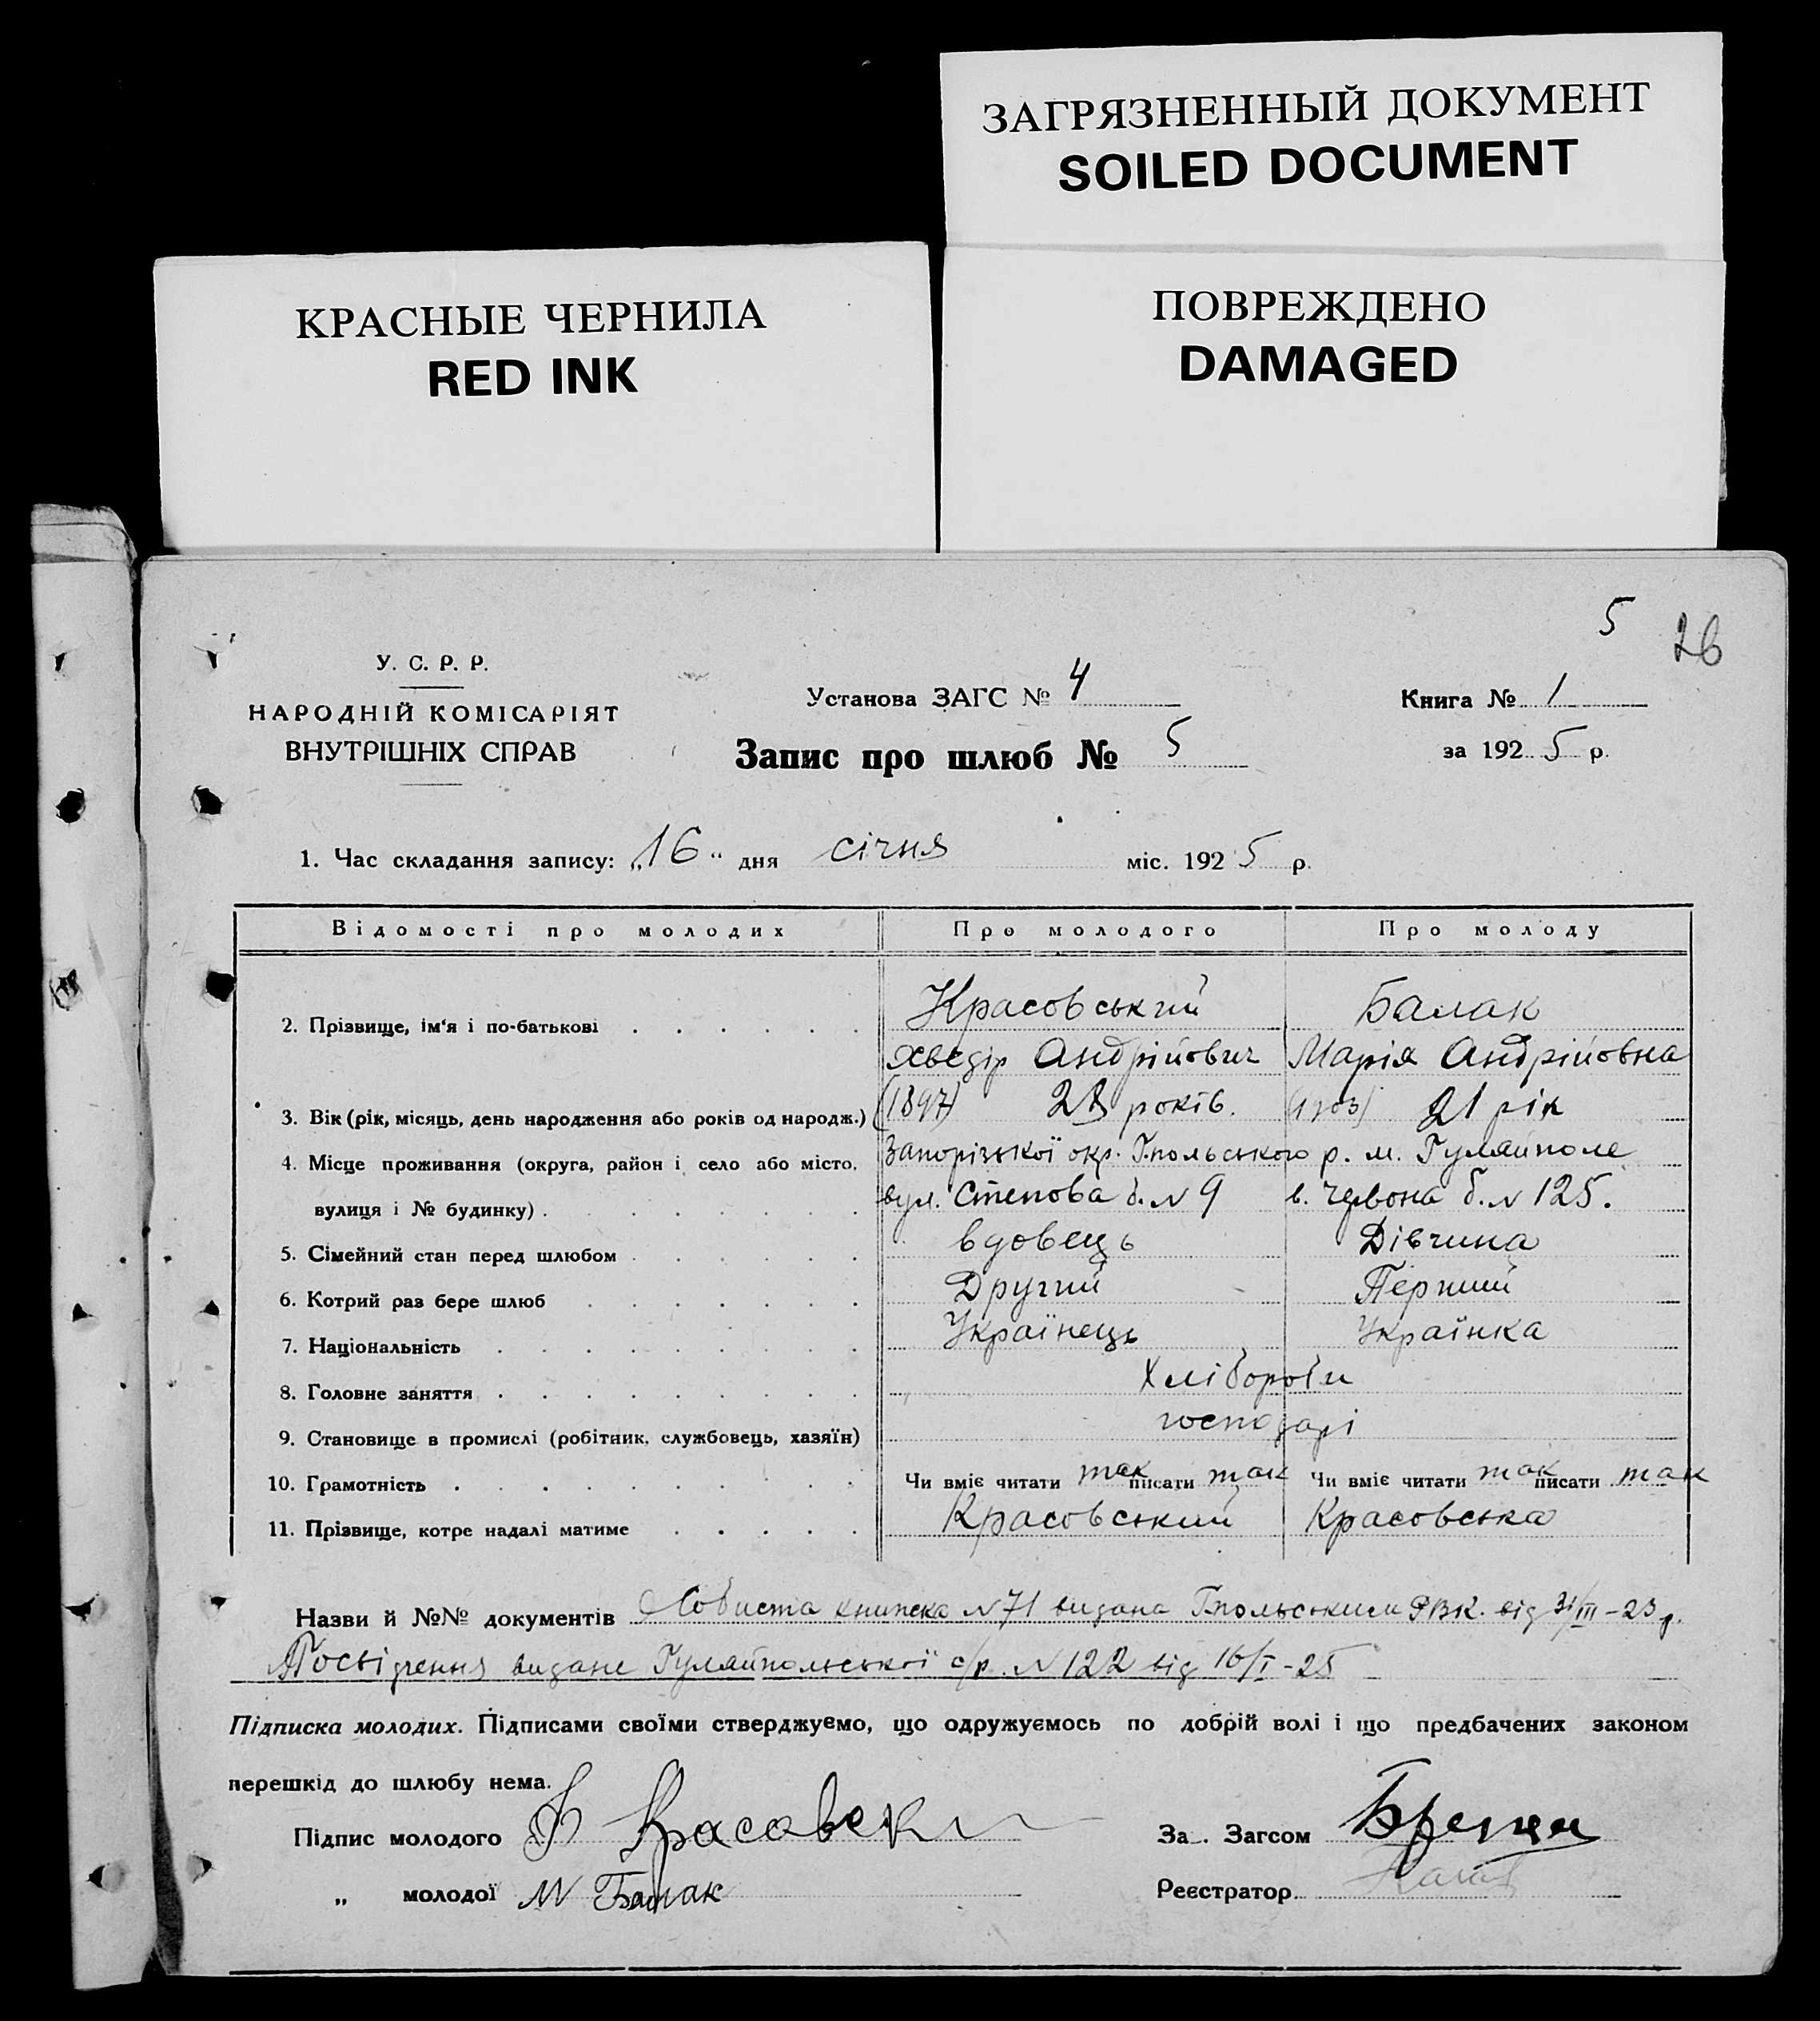 ЗАГРЯЗНЕННЫЙ ДОКУМЕНТ
SOILED DOCUMENT
КРАСНЫЕ ЧЕРНИЛА
RED INK
ПОВРЕЖДЕНО
DAMAGED
5 26
У. С. Р. Р.
НАРОДНІЙ КОМІСАРІЯТ
ВНУТРІШНІХ СПРАВ
Установа ЗАГС № 4
Запис про шлюб № 5
Книга № 1
за 1925 р.
1. Час складання запису: „16“ дня січня міс. 1925 р.
Відомості про молодих Про молодого Про молоду
2. Прізвище, ім'я і по-батькові Красовський Балак
Хведір Андрійович Марія Андрійовна
3. Вік (рік, місяць, день народження або років од народж.) (1897) 28 років. (1903) 21 рік
4. Місце проживання (округа, район і село або місто, Запорізької окр. Г.польського р. м. Гуляйполе
вулиця і № будинку) вул. Степова б. N 9 в. Червона б. N 125.
5. Сімейний стан перед шлюбом вдовець Дівчина
6. Котрий раз бере шлюб Другий Перший
7. Національність Українець Українка
8. Головне заняття Хлібороби
9. Становище в промислі (робітник, службовець, хазяїн) господарі
10. Грамотність Чи вміє читати так писати так Чи вміє читати так писати так
11. Прізвище, котре надалі матиме Красовський Красовська
Назви й №№ документів Собиста книжка N 71 видана Г.польським РВК. від 31/III-23 р.
Посвідчення видане Гуляйпольської с/р. N 122 від 16/I-25
Підписка молодих. Підписами своїми стверджуємо, що одружуємось по добрій волі і що предбачених законом
перешкід до шлюбу нема.
Підпис молодого Ф Красовски
„ молодої М Балак
За. Загсом
Реєстратор